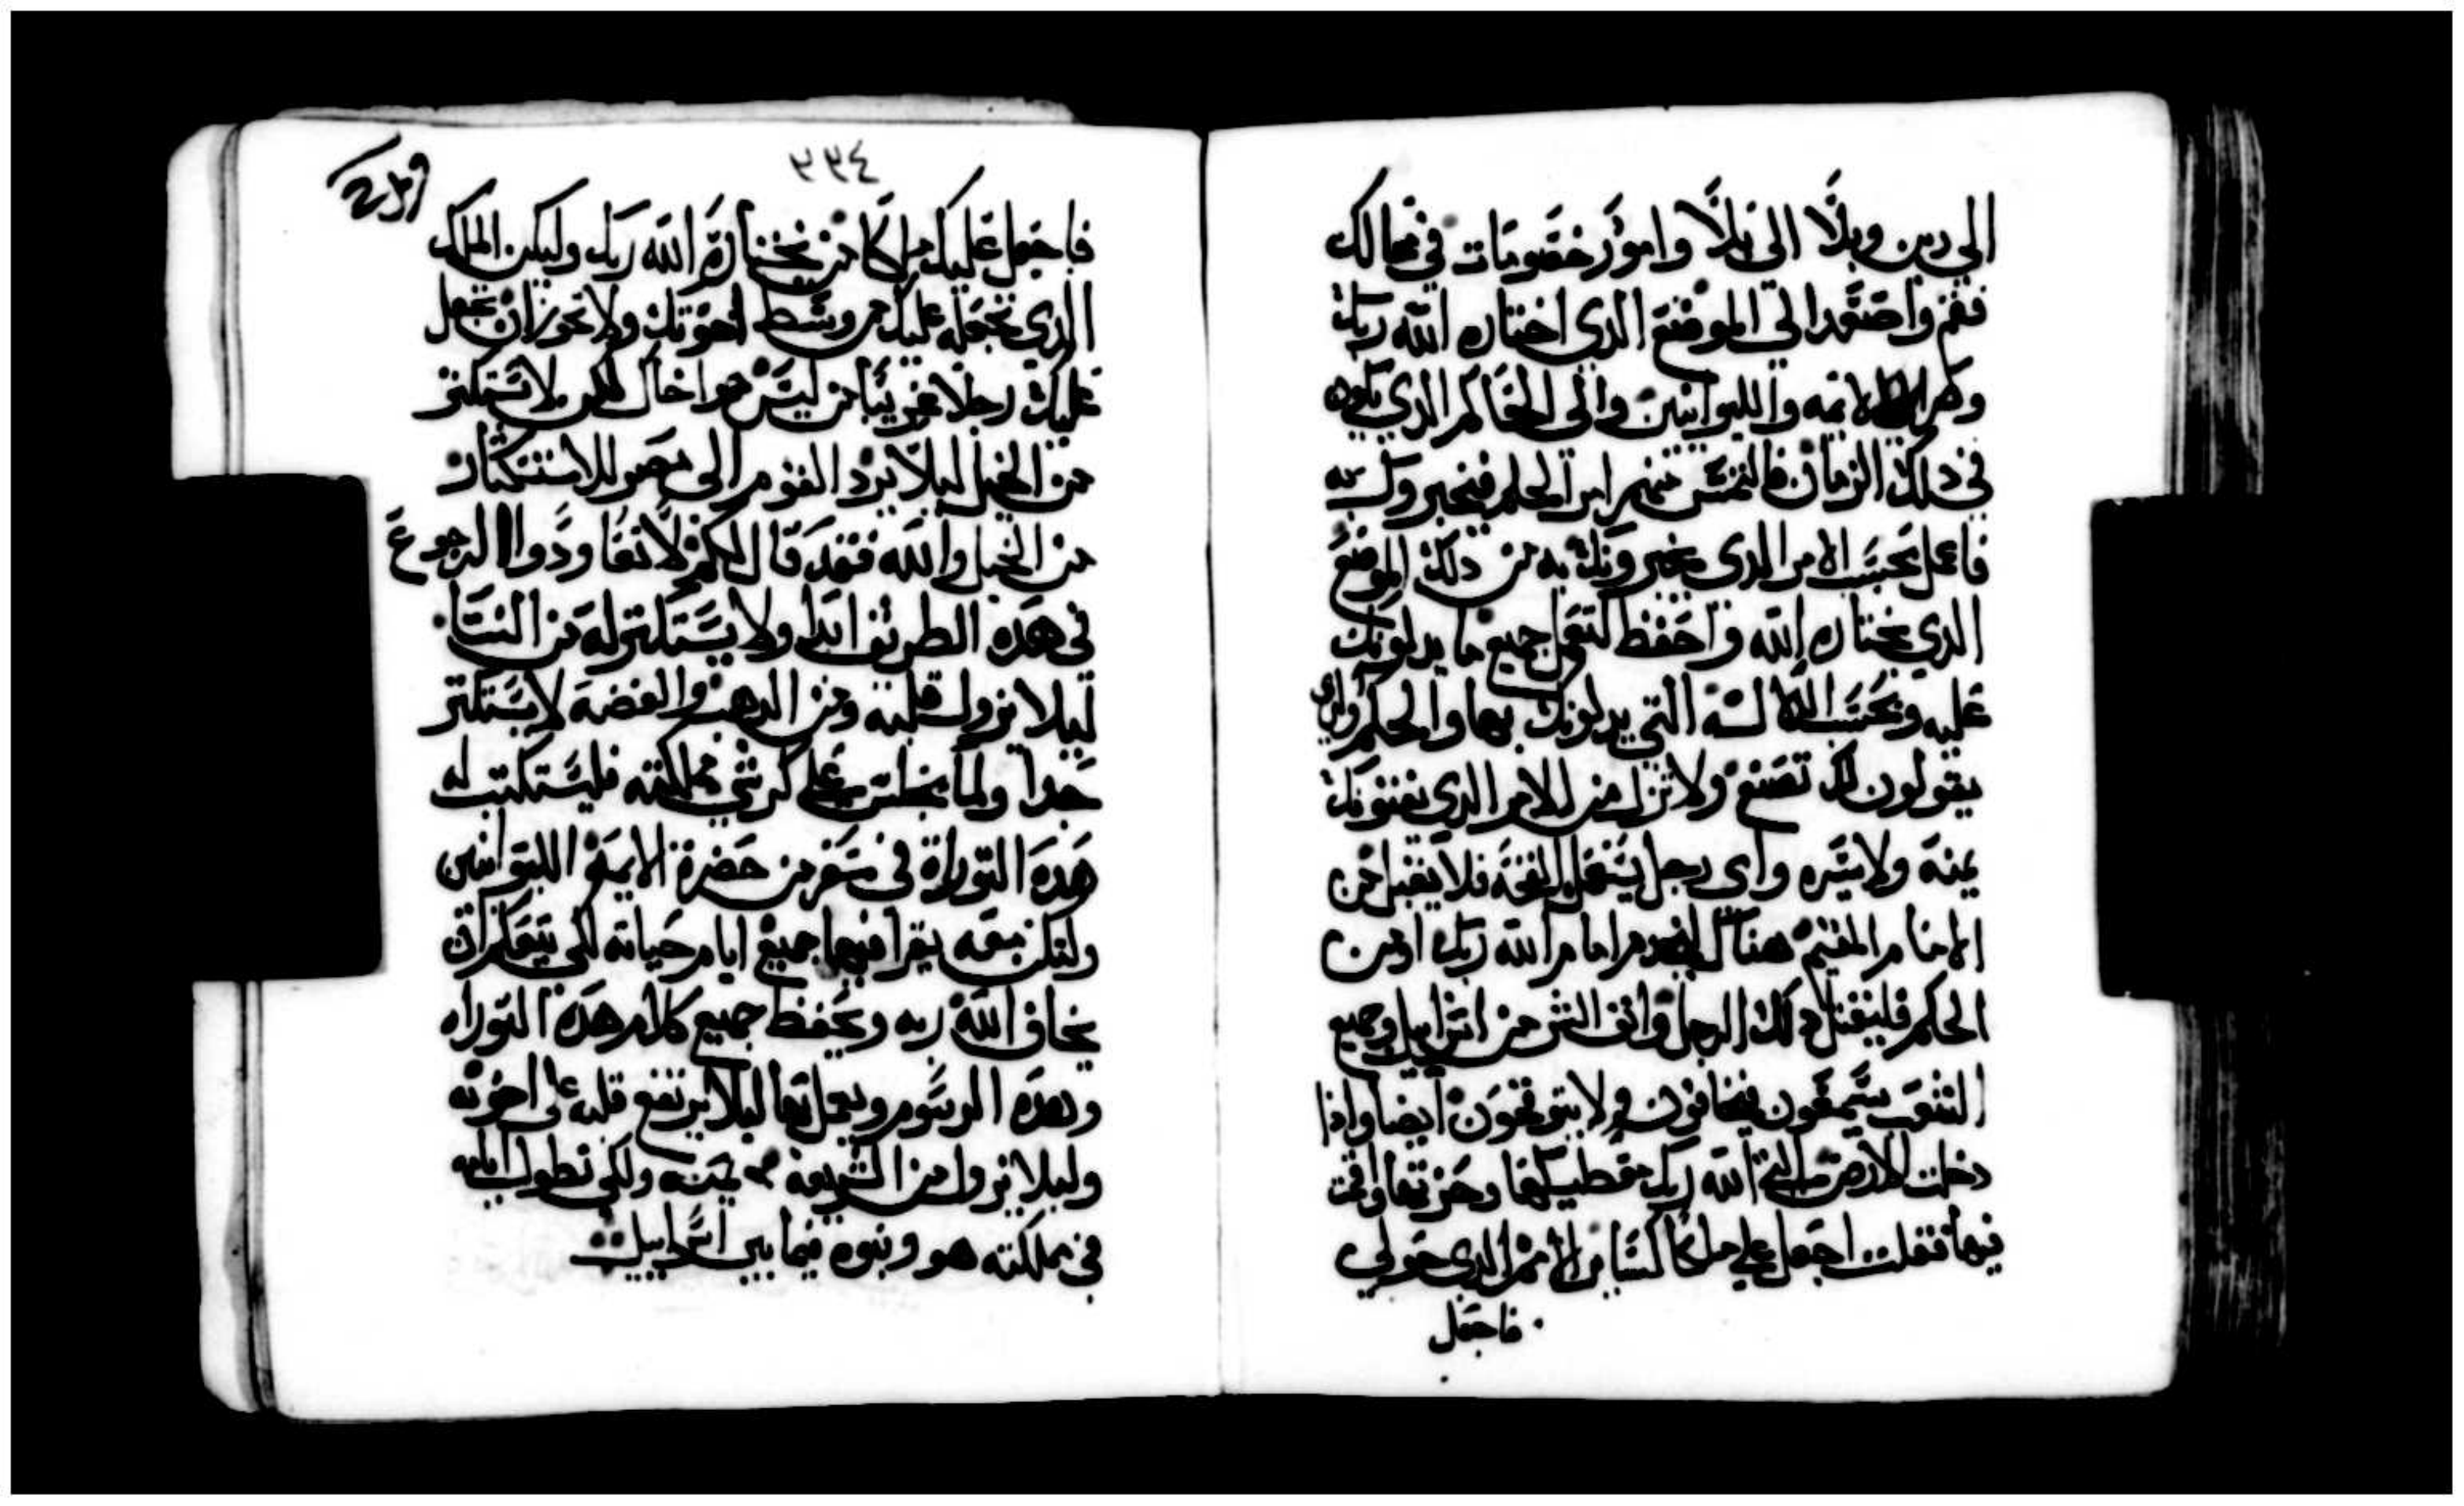 الي دين وبلًا الى بلًا وامور خصومات في محالك
فقم واصعد الى الموضع الدي اختاره الله ربك
الايمه والليوانيين والى الحاكم الدي يكون
في دلك الزمان فالتمس منهم امر الحكم فيخبروك به
فاعمل بحسب الامر الدى يخبرونك به من دلك الموضع
الدي يختاره الله واحفظ لتعمل جميع ما يدلونك
عليه وبحسب الدلالسه التي يدلونك بها والحكم
يقولون لك تصنع ولا تزل من الامر الدى يفتونك
يمنه ولا يسره واى رجل يستعمل القحه فلا يقبل من
الامام المقيم هناك ليخدم امام الله ربك او من
الحاكم فليقتل دلك الرجل وانف الشر من اسراييل وجميع
الشعب يسمعون فيخافون ولا يتوقحون ايضا وادا
دخلت الارض التي الله ربك معطيكها وحزتها واقمت
فيها فقلت اجعل علي ملكا كساير الامم الدي حولي
فاجعل
٣٣٤
فاجعل عليك ملكًا من يختاره الله ربك وليكن الملك
الدي تجعله عليك من وسط اخوتك ولا تحوز ان تجعل
عليك رجلا غريبًا من ليس هو اخاك لكن لا يستكتر
من الخيل ليلا يرد القوم الى مصر للاستكتار
من الخيل والله فقد قال لكم لا تعاودوا الرجوع
في هده الطريق ابدا ولا يستكتر له من النسا
ليلا يزول قلبه ومن الدهب والفضه لا يستكتر
جدا ولما يجلس على كرسي مملكته فليستكتب له
هده التوراة في سفر من حضرة الايمة الليوانيين
ولتكن معه يقرا فيها جميع ايام حياته لكي يتعلم ان
يخاف الله ربه ويحفظ جميع كلام هده التوراه
وهده الرسوم ويعمل بها ليلا يرتفع قلبه على اخوته
وليلا يزول من الشريعة يمنه ولكى تطول ايامه
في مملكته هو وبنوه فيما بين اسراييل